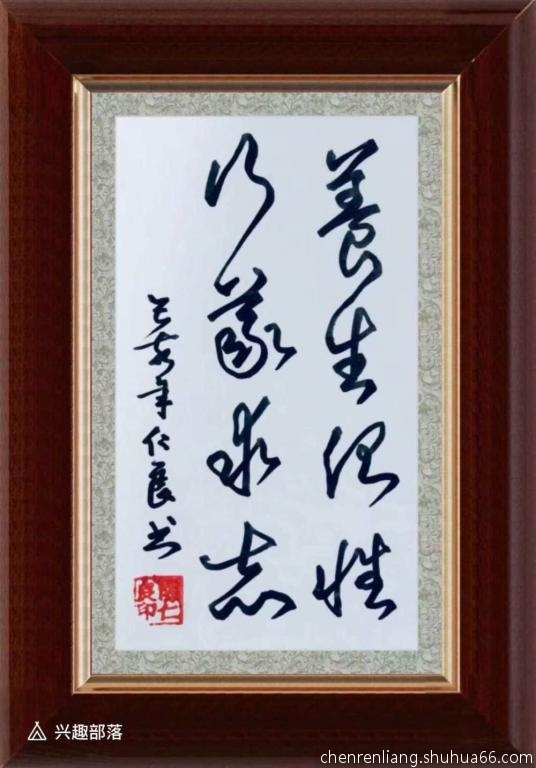 養生治性
行義求志
己亥年仁良书
陳仁良印
兴趣部落
chenrenliang.shuhua66.com